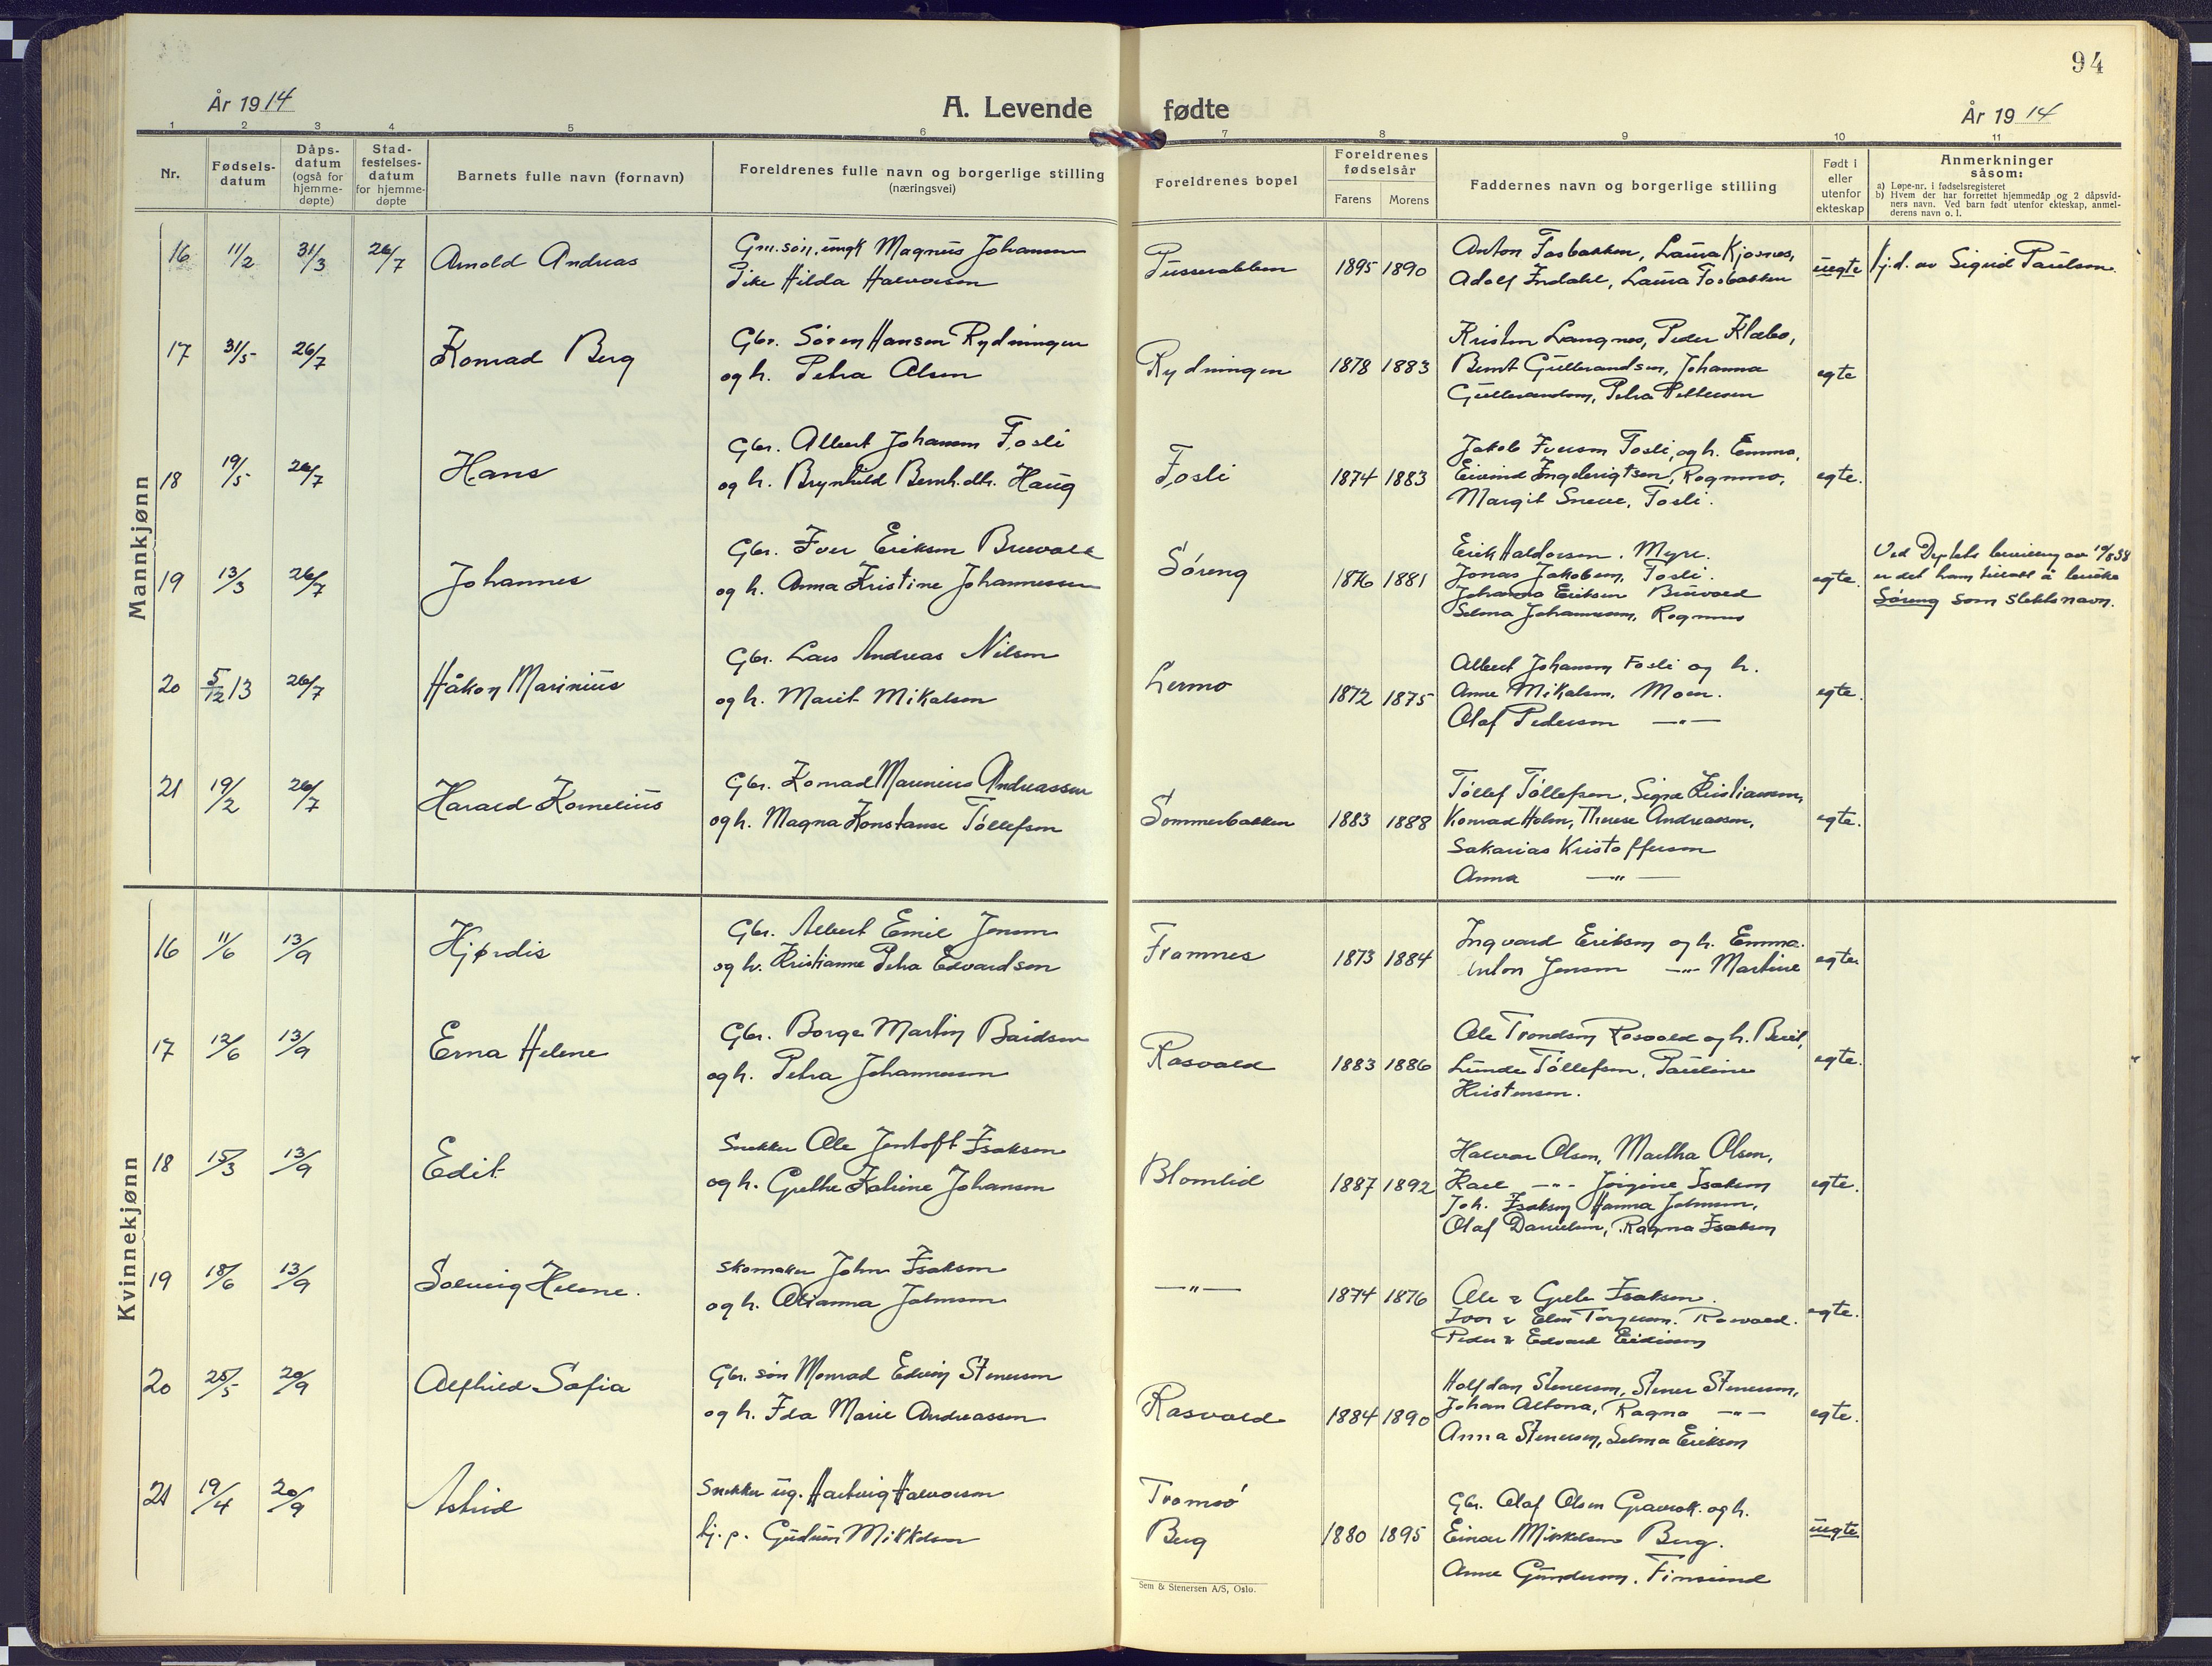 94
År 1914
A. Levende fødte
År 1914
1 2 3 4 5 6 7 8 9 10 11
Nr.
Fødsels-
datum
Dåps-
datum
(også for
hjemme-
døpte)
Stad-
festelses-
datum
for hjemme-
døpte
Barnets fulle navn (fornavn)
Foreldrenes fulle navn og borgerlige stilling
(næringsvei)
Foreldrenes bopel
Foreldrenes
fødselsår
Farens Morens
Faddernes navn og borgerlige stilling
Født i
eller
utenfor
ekteskap
Anmerkninger
såsom:
a) Løpe-nr. i fødselsregisteret
b) Hvem der har forrettet hjemmedåp og 2 dåpsvid-
ners navn. Ved barn født utenfor ekteskap, anmel-
derens navn o. l.
Mannkjønn
16 11/2 31/3 26/7 Arnold Andreas
Gm.søn, ungk Magnus Johansen
Pike Hilda Halvorsen
1895 1890
Anton Fosbakken, Laura Kjosnes,
Adolf Indahl, Laura Fosbakken
uegte
hj.d. av Sigrid Paulsen.
17 31/5 26/7 Konrad Berg
Gbr. Søren Hansen Rydningen
og h. Petra Olsen
Rydningen
1878 1883
Kristen Langnes, Peder Klæbo,
Bernt Gulbrandsen, Johanna
Gulbrandsen, Petra Pettersen
egte
18 19/5 26/7 Hans
Gbr. Albert Johansen Fosli
og h. Brynhild Bernh.dtr. Haug
Fosli
1874 1883
Jakob Iversen Fosli, og h. Emma,
Eivind Ingebrigtsen, Rognmo,
Margit Sneve, Fosli.
egte.
19 13/3 26/7 Johannes
Gbr. Iver Eriksen Buvold
og h. Anna Kristine Johannessen
Søreng
1876 1881
Erik Haldorsen. Myre.
Jonas Jakobsen, Fosli.
Johanna Eriksen Buvold
Selma Johannessen, Rognmo
egte.
Ved Dep.tets bevilling av 19/8 38
er det ham tillatt å bruke
Søreng som slektsnavn.
20 5/12 13 26/7 Håkon Marinius
Gbr. Lars Andreas Nilsen
og h. Marit Mikalsen
Lermo
1872 1875
Albert Johansen Fosli og h.
Anne Mikalsen, Moen.
Olaf Pedersen —"—
egte.
21 19/2 26/7 Harald Kornelius
Gbr. Konrad Marinius Andreassen
og h. Magna Konstanse Tollefsen
Sommerbakken
1883 1888
Tollef Tollefsen, Signe Kristiansen,
Konrad Holm, Therese Andreassen,
Sakarias Kristoffersen
Anna —"—
egte.
Kvinnekjønn
16 11/6 13/9 Hjørdis
Gbr. Albert Emil Jensen
og h. Kristianne Petra Edvardsen
Framnes
1873 1884
Ingvard Eriksen og h. Emma.
Anton Jensen —"— Martine
egte
17 12/6 13/9 Erna Helene
Gbr. Borge Martin Baidsen
og h. Petra Johannessen
Rasvold
1883 1886
Ole Trondsen Rosvold og h. Berit,
Lunde Tollefsen, Pauline
Kristensen.
egte.
18 15/3 13/9 Edit
Snekker Ole Jentoft Isaksen
og h. Grethe Katrine Johansen
Blomlid
1887 1892
Halvor Olsen, Martha Olsen,
Karl —"— Jørgine Isaksen
Joh. Isaksen Hanna Johnsen,
Olaf Danielsen, Ragna Isaksen
egte.
19 18/6 13/9 Solveig Helene.
Skomaker John Isaksen
og h. Olianna Johnsen
—"—
1874 1876
Ole & Grete Isaksen.
Ivar & Elen Torgersen. Rosvold.
Peder & Edvard
egte.
20 25/5 20/9 Alfhild Sofia
Gbr. søn Monrad Edvin Stenersen
og h. Ida Marie Andreassen
Rasvold
1884 1890
Halfdan Stenersen, Stener Stenersen,
Johan Altona, Ragna —"—
Anna Stenersen, Selma Eriksen
egte.
21 19/4 20/9 Astrid
Snekker ug. Hartvig Halvorsen
hj.p. Gudrun Mikkelsen
Tromsø
Berg
1880 1895
Gbr. Olaf Olsen Gravrok. og h.
Einar Mikkelsen Berg.
Anne Gundersen. Finsund
uegte
Sem & Stenersen A/S, Oslo.